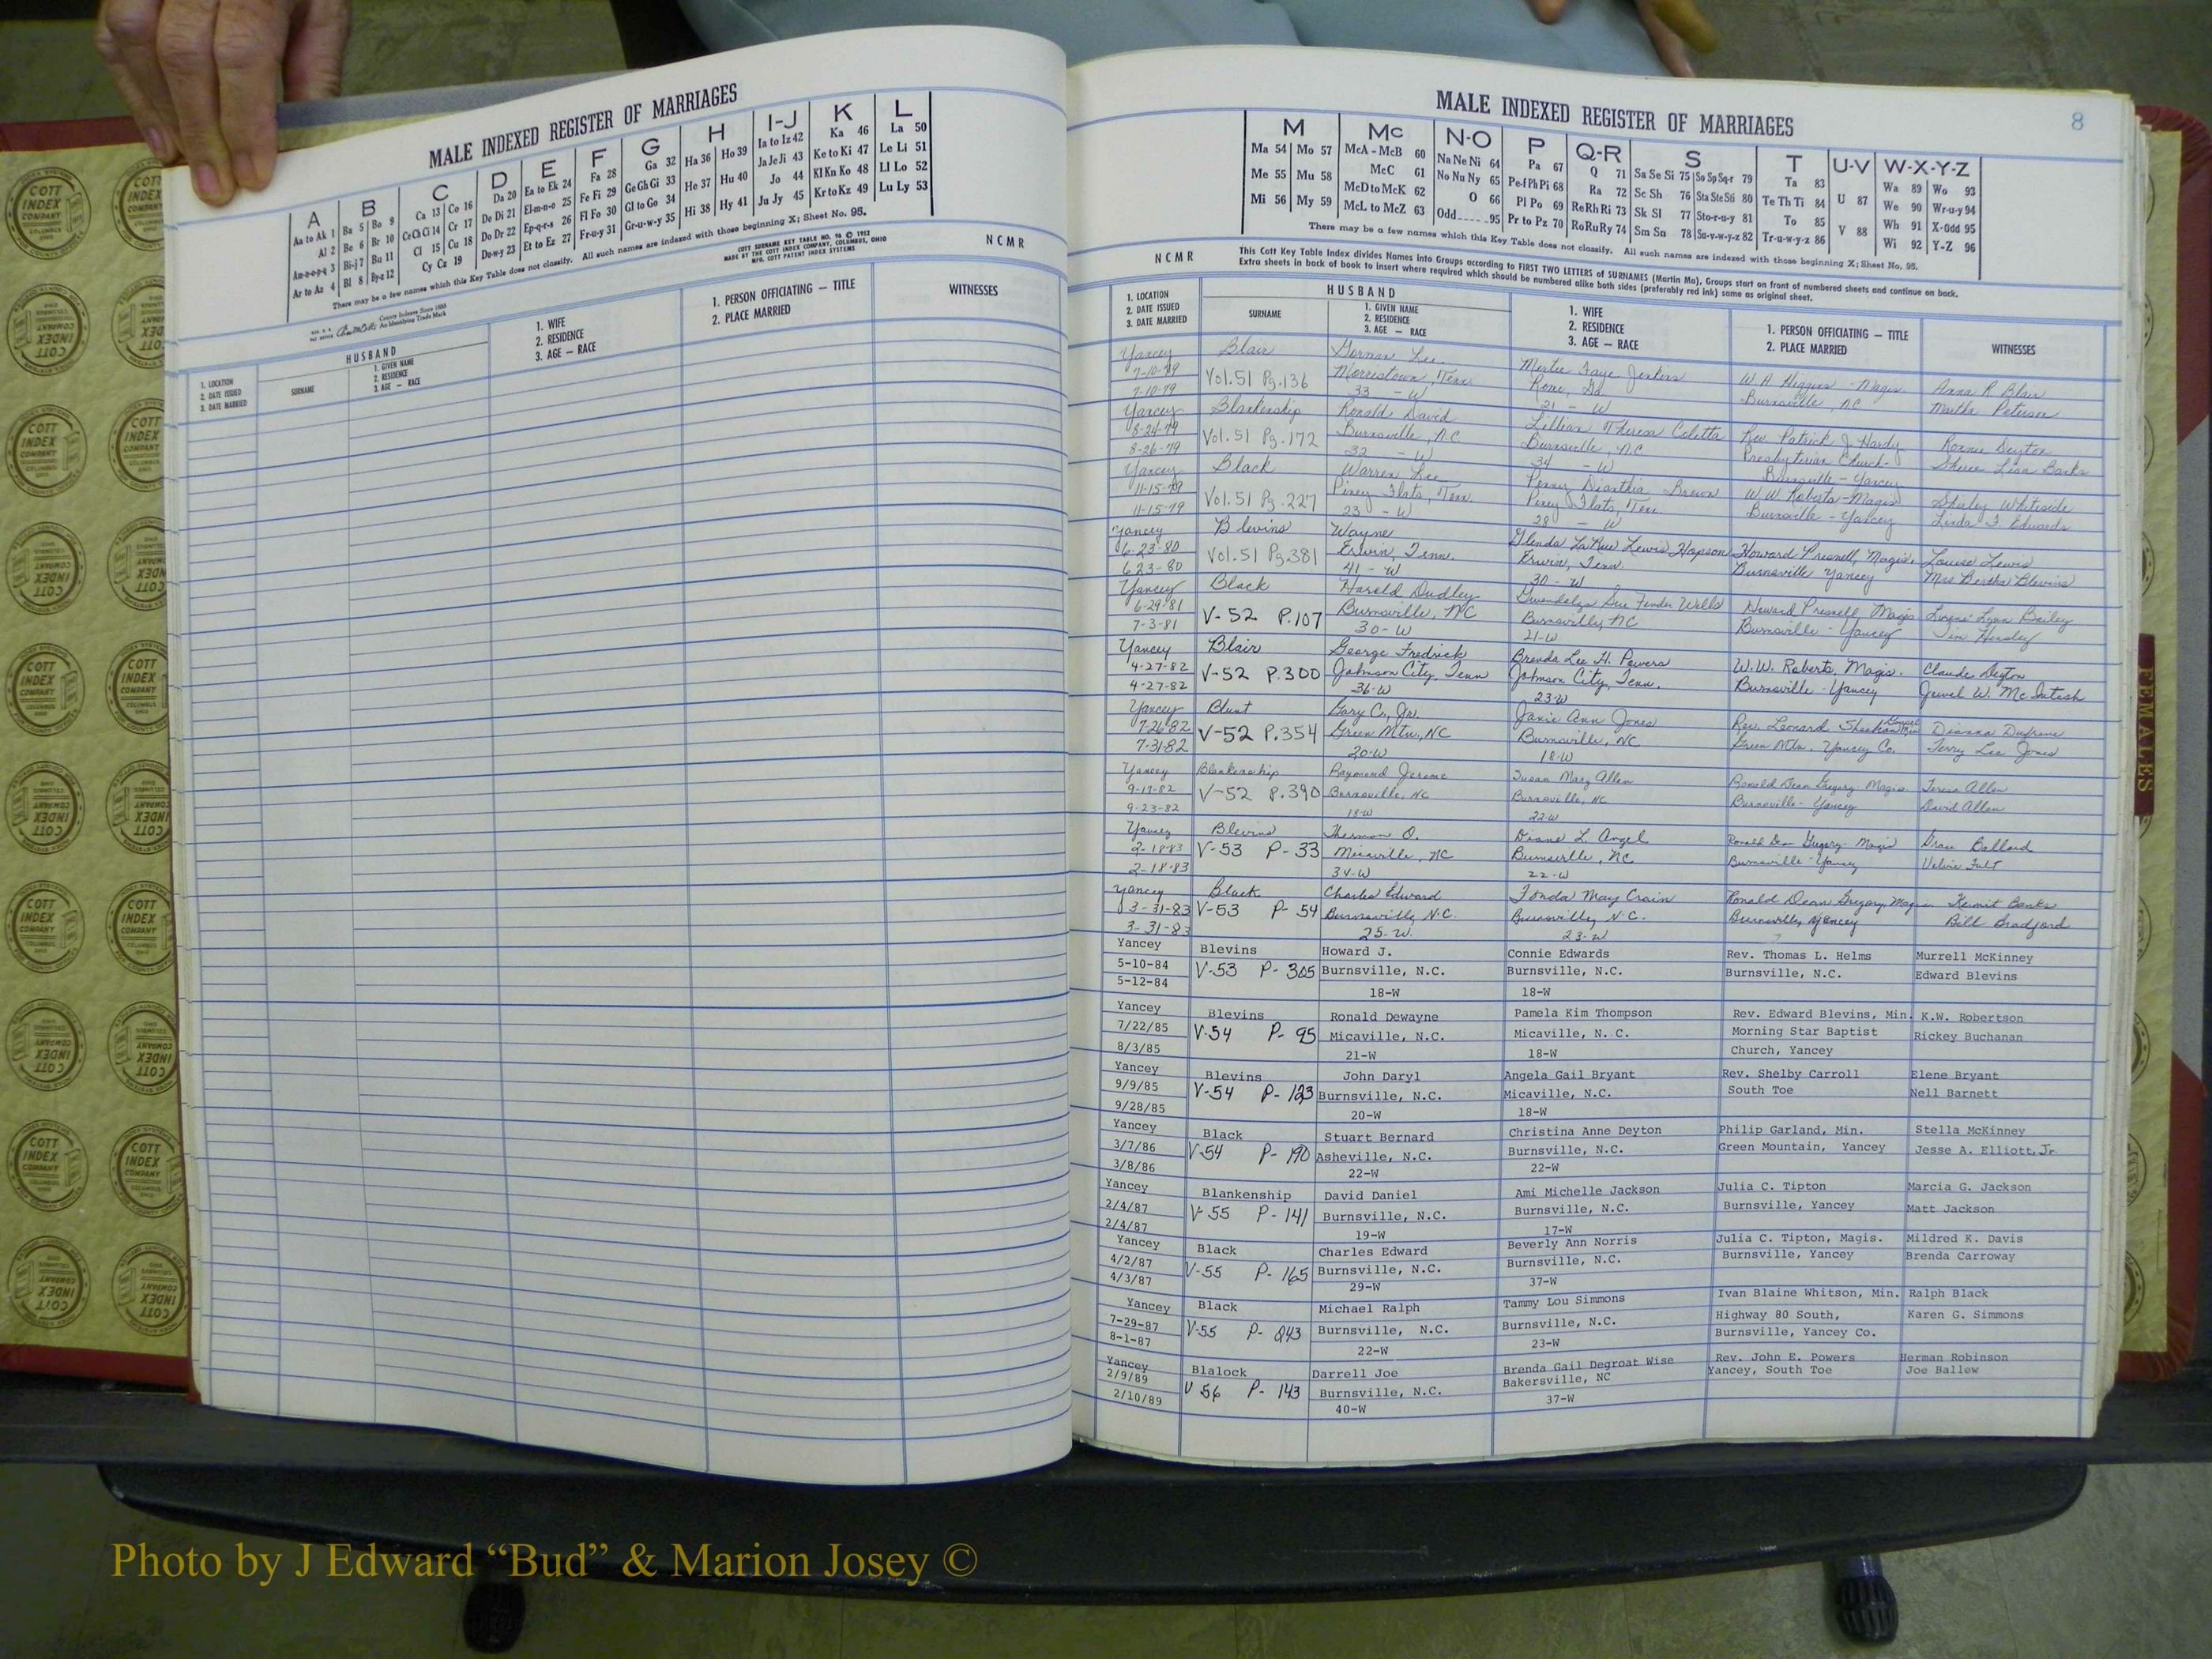 MALE INDEXED REGISTER OF MARRIAGES
A B C D E F G H I-J K L
Aa to Ak 1 Ba 5 Bo 9 Ca 13 Co 16 Da 20 Ea to Ek 24 Fa 28 Ga 32 Ha 36 Ho 39 Ia to Iz 42 Ka 46 La 50
Al 2 Be 6 Br 10 Ce Ch Ci 14 Cr 17 De Di 21 El-m-n-o 25 Fe Fi 29 Ge Gh Gi 33 He 37 Hu 40 Ja Je Ji 43 Ke to Ki 47 Le Li 51
An-o-p-q 3 Bi-j 7 Bu 11 Cl 15 Cu 18 Do Dr 22 Ep-q-r-s 26 Fl Fo 30 Gl to Go 34 Hi 38 Hy 41 Jo 44 Kl Kn Ko 48 Ll Lo 52
Ar to Az 4 Bl 8 By-z 12 Cy Cz 19 Du-w-y 23 Et to Ez 27 Fr-u-y 31 Gr-u-w-y 35 Ju Jy 45 Kr to Kz 49 Lu Ly 53
There may be a few names which this Key Table does not classify. All such names are indexed with those beginning X; Sheet No. 95.
COTT SURNAME KEY TABLE NO. 96 © 1952
MADE BY THE COTT INDEX COMPANY, COLUMBUS, OHIO
MFG. COTT PATENT INDEX SYSTEMS
NCMR
County Indexes Since 1888
An Identifying Trade Mark
HUSBAND
1. LOCATION
2. DATE ISSUED
3. DATE MARRIED
SURNAME
1. GIVEN NAME
2. RESIDENCE
3. AGE — RACE
1. WIFE
2. RESIDENCE
3. AGE — RACE
1. PERSON OFFICIATING — TITLE
2. PLACE MARRIED
WITNESSES
MALE INDEXED REGISTER OF MARRIAGES
8
M Mc N-O P Q-R S T U-V W-X-Y-Z
Ma 54 Mo 57 McA - McB 60 Na Ne Ni 64 Pa 67 Q 71 Sa Se Si 75 So Sp Sq-r 79 Ta 83 Wa 89 Wo 93
Me 55 Mu 58 McC 61 No Nu Ny 65 Pe-f Ph Pi 68 Ra 72 Sc Sh 76 Sta Ste Sti 80 Te Th Ti 84 U 87 We 90 Wr-u-y 94
Mi 56 My 59 McD to McK 62 O 66 Pl Po 69 Re Rh Ri 73 Sk Sl 77 Sto-r-u-y 81 To 85 Wh 91 X-Odd 95
McL to McZ 63 Odd 95 Pr to Pz 70 Ro Ru Ry 74 Sm Sn 78 Su-v-w-y-z 82 Tr-u-w-y-z 86 V 88 Wi 92 Y-Z 96
There may be a few names which this Key Table does not classify. All such names are indexed with those beginning X; Sheet No. 95.
NCMR
This Cott Key Table Index divides Names into Groups according to FIRST TWO LETTERS of SURNAMES (Martin Ma), Groups start on front of numbered sheets and continue on back.
Extra sheets in back of book to insert where required which should be numbered alike both sides (preferably red ink) same as original sheet.
1. LOCATION
2. DATE ISSUED
3. DATE MARRIED
HUSBAND
SURNAME
1. GIVEN NAME
2. RESIDENCE
3. AGE — RACE
1. WIFE
2. RESIDENCE
3. AGE — RACE
1. PERSON OFFICIATING — TITLE
2. PLACE MARRIED
WITNESSES
Yancey Blair Lee Faye Jenkins W.A. Higgins - Magis. Anna R Blair
7-10-79 Vol.51 Pg.136 Morristown, Tenn. Burnsville, NC Martha Peterson
7-10-79 33 - W 21 - W
Yancey Blankenship Ronald David Lillian Theresa Coletta Rev. Patrick J. Hardy Ronnie Deyton
8-24-79 Vol.51 Pg.172 Burnsville, N.C Burnsville, N.C Presbyterian Church- Sheree Lisa Banks
8-26-79 32 - W 34 - W Burnsville - Yancey
Yancey Black Warren Lee Penny Brown W.W. Roberts - Magis Shirley Whiteside
11-15-79 Vol.51 Pg.227 Piney Flats, Tenn. Piney Flats, Tenn Burnsville - Yancey Linda Edwards
11-15-79 23 - W 28 - W
Yancey Blevins Wayne Glenda LaRue Lewis Hopson Howard Presnell, Magis. Louise Lewis
6-23-80 Vol.51 Pg.381 Erwin, Tenn. Erwin, Tenn. Burnsville Yancey Mrs Bertha Blevins
6-23-80 41 - W 30 - W
Yancey Black Harold Dudley Gwendolyn Sue Fender Wells Howard Presnell, Magis Lynn Bailey
6-29-81 V-52 P.107 Burnsville, NC Burnsville, NC Burnsville - Yancey Jim Hensley
7-3-81 30-W 21-W
Yancey Blair George Fredrick Brenda Lee H. Powers W.W. Roberts, Magis. Claude Deyton
4-27-82 V-52 P.300 Johnson City, Tenn Johnson City, Tenn. Burnsville - Yancey Jewel W. McIntosh
4-27-82 36-W 23-W
Yancey Blunt Gary C., Jr. Janie Ann Jones Rev. Leonard Dianna Dufrene
7-26-82 V-52 P.354 Green Mtn., NC Burnsville, NC Green Mtn. Yancey Co. Terry Lee Jones
7-31-82 20-W 18-W
Yancey Blankenship Raymond Jerome Susan Mary Allen Ronald Dean Gregory Magis Teresa Allen
9-17-82 V-52 P.390 Burnsville, NC Burnsville, NC Burnsville - Yancey David Allen
9-23-82 18-W 22-W
Yancey Blevins Thermon O. Diane L. Angel Ronald Dean Gregory Magis Ballard
2-18-83 V-53 P-33 Micaville, NC Burnsville, NC Burnsville - Yancey
2-18-83 34-W 22-W
Yancey Black Charles Edward Tonda May Crain Ronald Dean Gregory, Mag Kermit Banks
3-31-83 V-53 P-54 Burnsville, N.C. Burnsville, N.C. Burnsville, Yancey Bill Bradford
3-31-83 25-W. 23-W
Yancey Blevins Howard J. Connie Edwards Rev. Thomas L. Helms Murrell McKinney
5-10-84 V-53 P-305 Burnsville, N.C. Burnsville, N.C. Burnsville, N.C. Edward Blevins
5-12-84 18-W 18-W
Yancey Blevins Ronald Dewayne Pamela Kim Thompson Rev. Edward Blevins, Min. K.W. Robertson
7/22/85 V-54 P-95 Micaville, N.C. Micaville, N.C. Morning Star Baptist Rickey Buchanan
8/3/85 21-W 18-W Church, Yancey
Yancey Blevins John Daryl Angela Gail Bryant Rev. Shelby Carroll Elene Bryant
9/9/85 V-54 P-123 Burnsville, N.C. Micaville, N.C. South Toe Nell Barnett
9/28/85 20-W 18-W
Yancey Black Stuart Bernard Christina Anne Deyton Philip Garland, Min. Stella McKinney
3/7/86 V-54 P-190 Asheville, N.C. Burnsville, N.C. Green Mountain, Yancey Jesse A. Elliott, Jr
3/8/86 22-W 22-W
Yancey Blankenship David Daniel Ami Michelle Jackson Julia C. Tipton Marcia G. Jackson
2/4/87 V-55 P-141 Burnsville, N.C. Burnsville, N.C. Burnsville, Yancey Matt Jackson
2/4/87 19-W 17-W
Yancey Black Charles Edward Beverly Ann Norris Julia C. Tipton, Magis. Mildred K. Davis
4/2/87 V-55 P-165 Burnsville, N.C. Burnsville, N.C. Burnsville, Yancey Brenda Carroway
4/3/87 29-W 37-W
Yancey Black Michael Ralph Tammy Lou Simmons Ivan Blaine Whitson, Min. Ralph Black
7-29-87 V-55 P-243 Burnsville, N.C. Burnsville, N.C. Highway 80 South, Karen G. Simmons
8-1-87 22-W 23-W Burnsville, Yancey Co.
Yancey Blalock Darrell Joe Brenda Gail Degroat Wise Rev. John E. Powers Herman Robinson
2/9/89 V 56 P-143 Burnsville, N.C. Bakersville, NC Yancey, South Toe Joe Ballew
2/10/89 40-W 37-W
FEMALES
COTT
INDEX
COMPANY
COLUMBUS
OHIO
Photo by J Edward “Bud” & Marion Josey ©